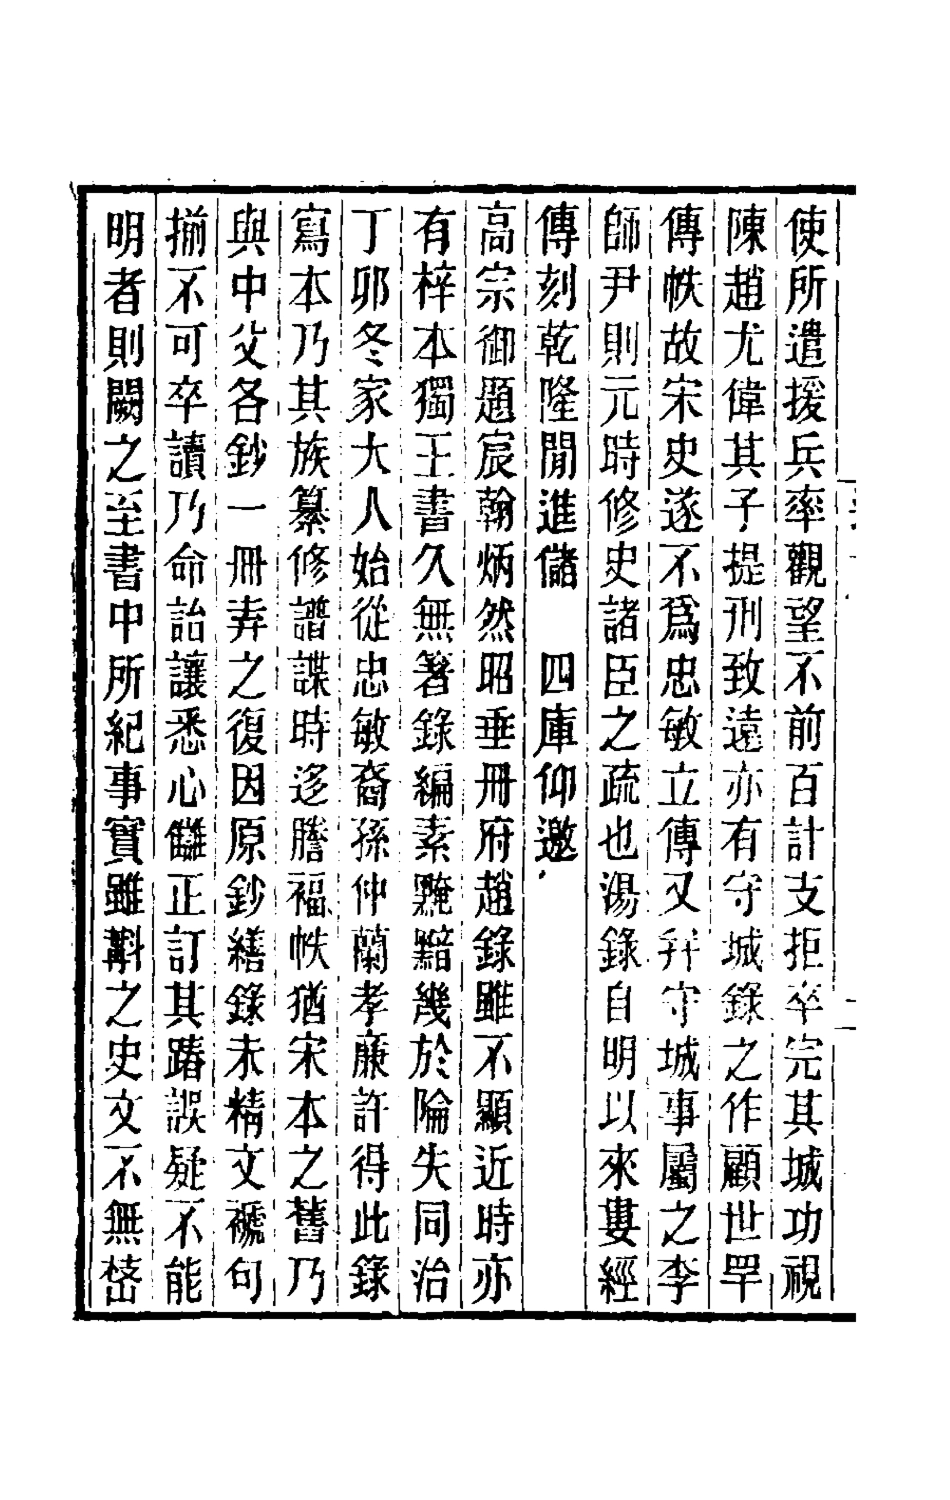 使所遣援兵率觀望不前百計支拒卒完其城功視
陳趙尤偉其子提刑致遠亦有守城錄之作顧世罕
傳帙故宋史遂不爲忠敏立傳又幷守城事屬之李
師尹則元時修史諸臣之疏也湯錄自明以來婁經
傳刻乾隆閒進儲　四庫仰邀
高宗御題宸翰炳然昭垂冊府趙錄雖不顯近時亦
有梓本獨王書久無箸錄編素黤黯幾於陯失同治
丁卯冬家大人始從忠敏裔孫仲蘭孝廉許得此錄
寫本乃其族纂修譜諜時迻謄福帙猶宋本之舊乃
與中父各鈔一冊弆之復因原鈔繕錄未精文褫句
揃不可卒讀乃命詒讓悉心讎正訂其踳誤疑不能
明者則闕之至書中所紀事實雖斠之史文不無楛